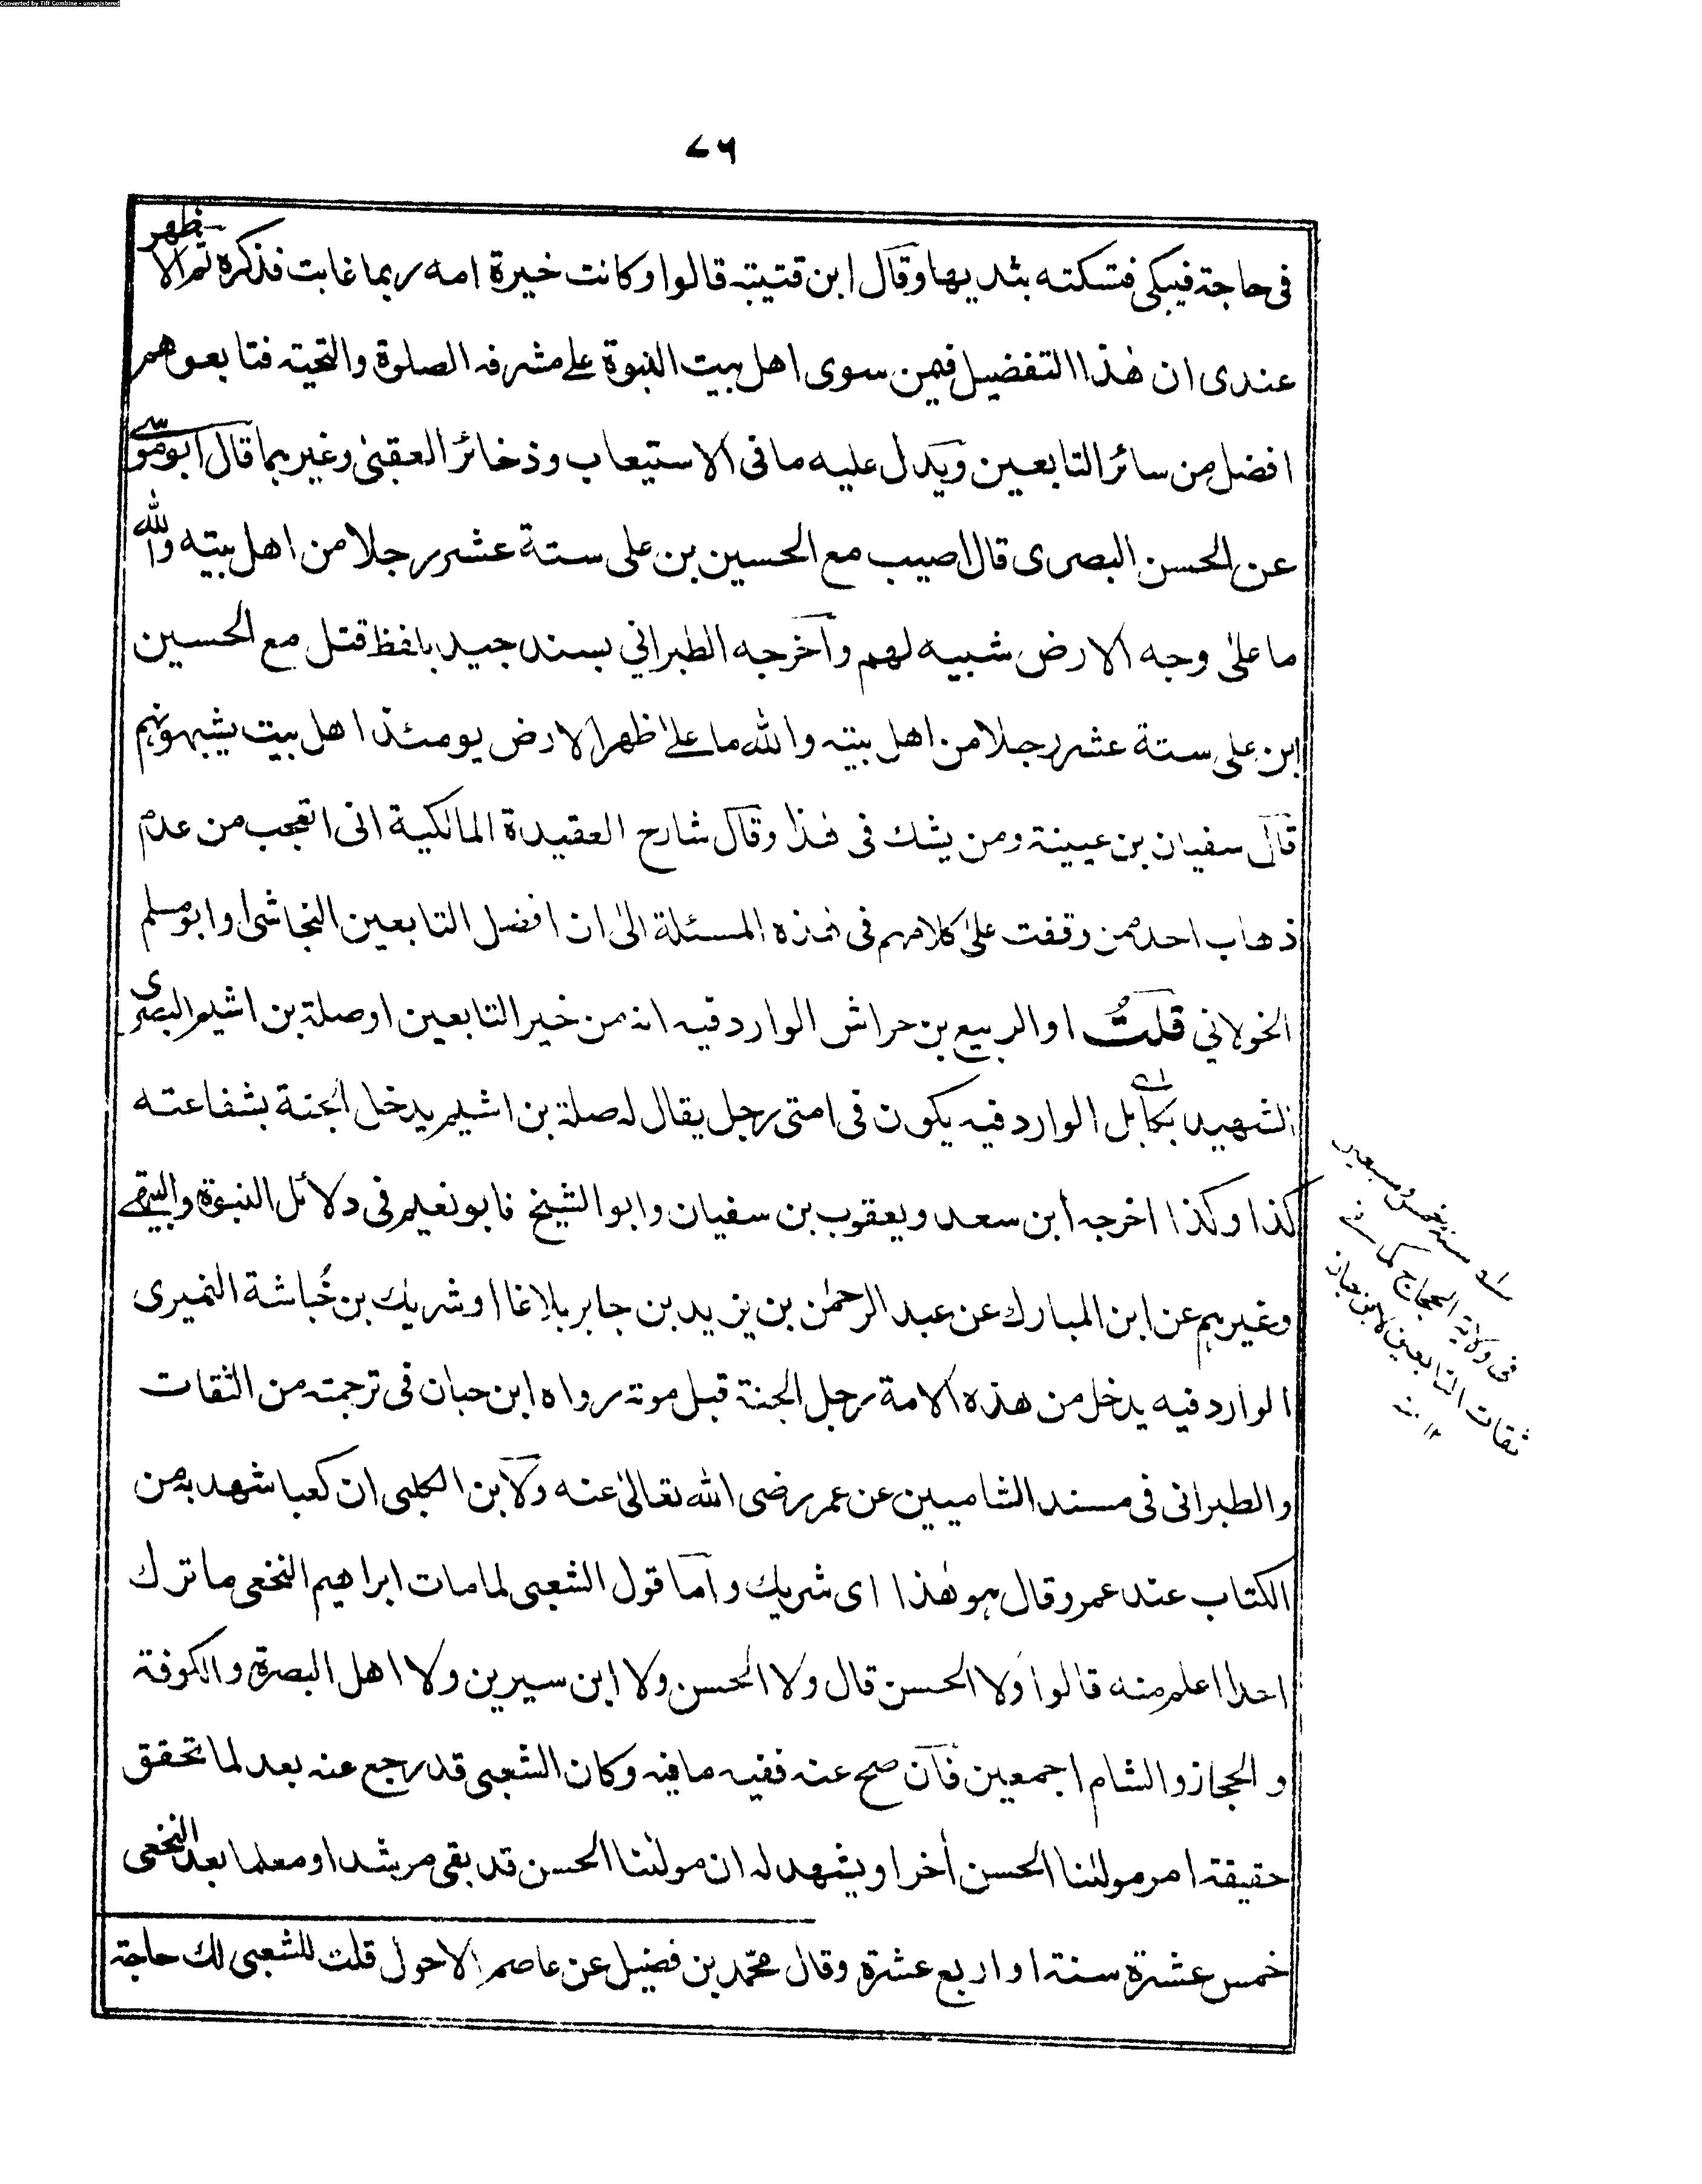 Converted by Tiff Combine - unregistered
٧٦
فى حاجة فيبكى فتسكته بثديها وقال ابن قتيبة قالوا وكانت خيرة امه ربما غابت فذكره ثم الاظهر
عندى ان هٰذا التفضيل فيمن سوى اهل بيت النبوة على مشرفه الصلوة والتحية فتابعوهم
افضل من سائر التابعين ويدل عليه ما فى الاستيعاب وذخائر العقبىٰ وغيرهما قال ابوموسى
عن الحسن البصرى قال اصيب مع الحسين بن على ستة عشر رجلا من اهل بيته والله
ما علىٰ وجه الارض شبيه لهم وأخرجه الطبراني بسند جيد بلفظ قتل مع الحسين
ابن على ستة عشر رجلا من اهل بيته والله ما علىٰ ظهر الارض يومئذ اهل بيت يشبهونهم
قال سفيان بن عيينة ومن يشك فى هٰذا وقال شارح العقيدة المالكية انى اتعجب من عدم
ذهاب احد ممن وقفت علىٰ كلامهم فى هٰذه المسئلة الىٰ ان افضل التابعين النجاشى او ابومسلم
الخولاني قلتُ او الربيع بن حراش الوارد فيه انه من خير التابعين او صلة بن اشيم البصرى
الشهيد بكابل الوارد فيه يكون فى امتى رجل يقال له صلة بن اشيم يدخل الجنة بشفاعته
كذا وكذا اخرجه ابن سعد ويعقوب بن سفيان وابو الشيخ فابو نعيم فى دلائل النبوة والبيهقى
وغيرهم عن ابن المبارك عن عبد الرحمٰن بن يزيد بن جابر بلاغا او شريك بن خُباشة النميرى
الوارد فيه يدخل من هذه الامة رجل الجنة قبل موته رواه ابن حبان فى ترجمته من الثقات
والطبرانى فى مسند الشاميين عن عمر رضى الله تعالىٰ عنه ولابن الكلبى ان كعبا شهد به من
الكتاب عند عمر وقال هو هٰذا اى شريك وأما قول الشعبى لما مات ابراهيم النخعى ما ترك
احدا اعلم منه قالوا ولا الحسن قال ولا الحسن ولا ابن سيرين ولا اهل البصرة والكوفة
والحجاز والشام اجمعين فان صح عنه ففيه ما فيه وكان الشعبى قد رجع عنه بعد لما تحقق
حقيقة امر مولٰنا الحسن أخرا ويشهد له ان مولٰنا الحسن قد بقى مرشدا ومعلما بعد النخعى
خمس عشرة سنة او اربع عشرة وقال محمد بن فضيل عن عاصم الاحول قلت للشعبى لك حاجة
سنة خمس وسبعين
فى ولاية الحجاج كما فى
ثقات التابعين لابن حبان
١٢ منه